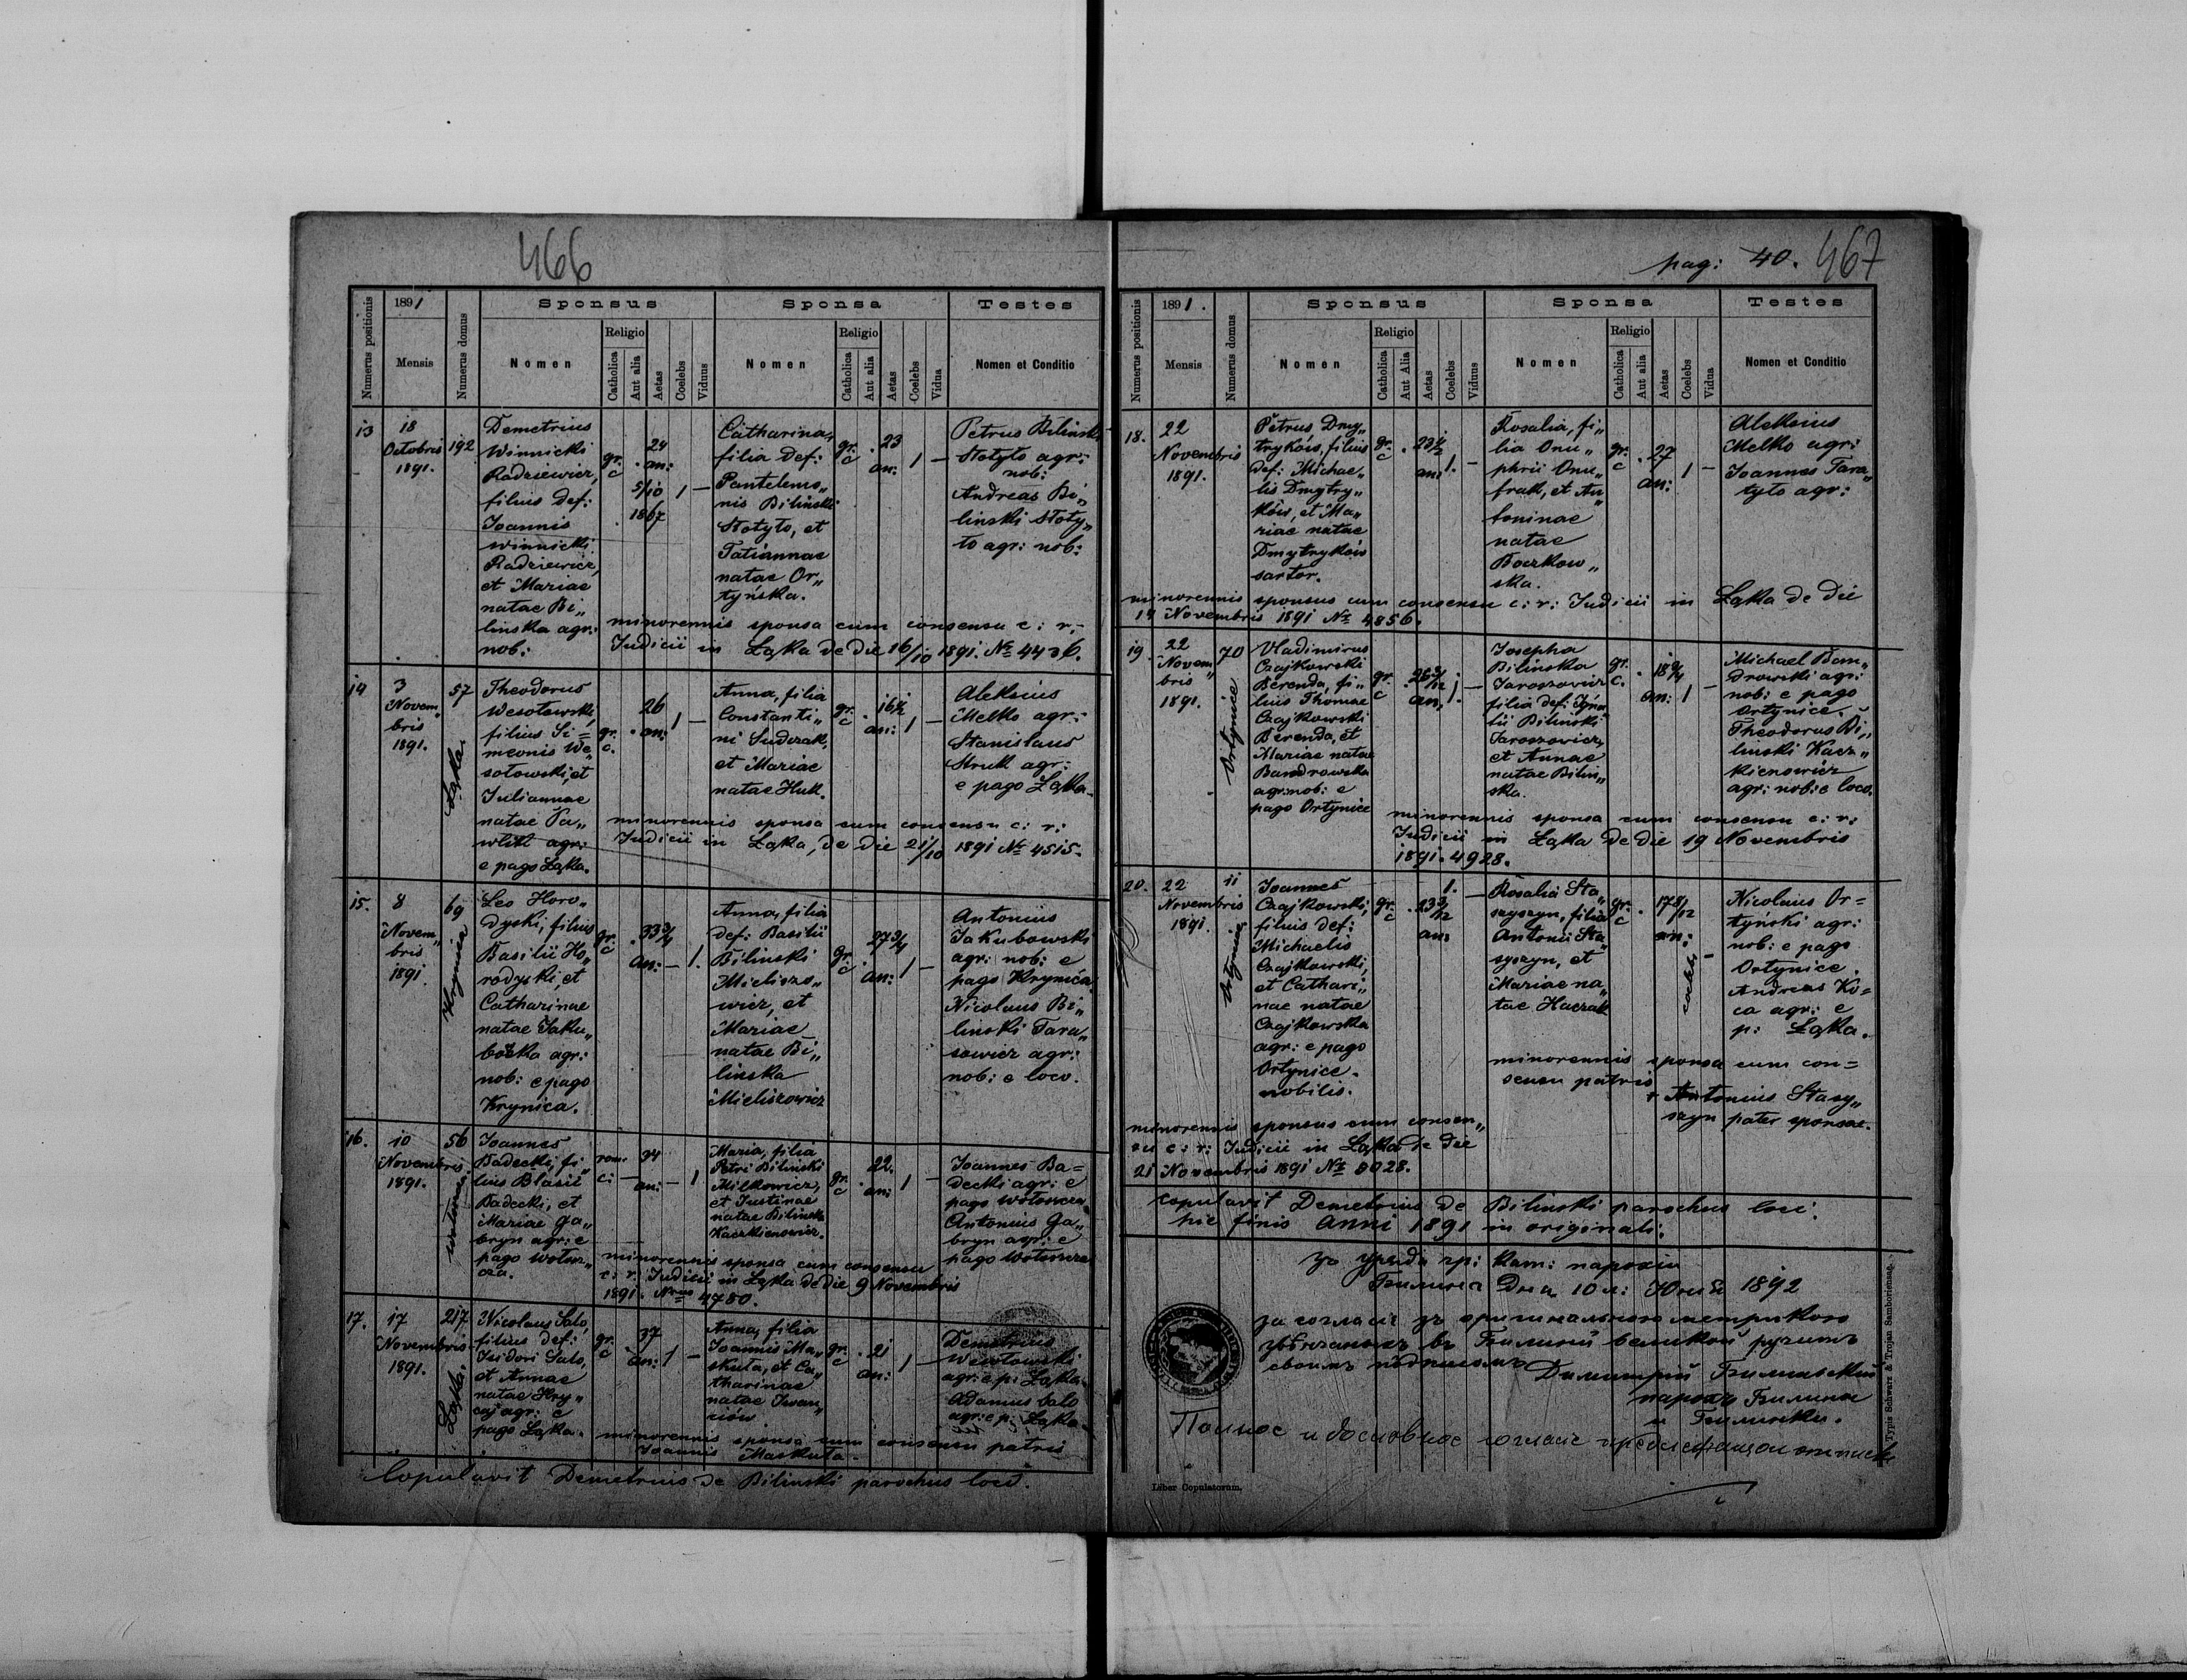 466
Numerus positionis
1891
Mensis
Numerus domus
Sponsus
Nomen
Religio
Catholica
Aut alia
Aetas
Coelebs
Viduus
Sponsa
Nomen
Religio
Catholica
Aut alia
Aetas
Coelebs
Vidua
Testes
Nomen et Conditio
13
18
Octobris
1891.
192
Demetrius
Winnicki
Radziewicz,
filius def:
Joannis
Winnicki
Radziewicz,
et Mariae
natae Bi„
linska agr:
nob:
gr.
c
24
an:
5/10
1867
1 —
Catharina,
filia def:
Pantelemo„
nis Bilinski
Stotyto, et
Tatiannae
natae Or„
tyńska.
gr.
c
23
an:
1 —
Petrus Bilinski
Stotyto agr:
nob:
Andreas Bi„
linski Stoty„
to agr: nob:
minorennis sponsa cum consensu c: r:
Judicii in Łąka de die 16/10 1891. No 4436.
14
3
Novem„
bris
1891.
57
Łąka.
Theodorus
Wesołowski,
filius Si=
meonis We„
sołowski, et
Juliannae
natae Pa„
wlik agr:
e pago Łąka.
gr.
c.
26
an:
1 —
Anna, filia
Constanti„
ni Sudczak,
et Mariae
natae Huk.
gr.
c
16½
an:
1 —
Aleksius
Melko agr:
Stanislaus
Struk agr:
e pago Łąka.
minorennis sponsa cum consensu c: r:
Judicii in Łąka, de die 21/10 1891 No 4515.
15.
8
Novem„
bris
1891.
69
Krynica
Leo Horo„
dyski, filius
Basilii Ho„
rodyski, et
Catharinae
natae Jaku„
bóska agr:
nob: e pago
Krynica.
gr.
c
33¾
an:
— 1.
Anna, filia
def: Basilii
Bilinski
Mieliszo„
wicz, et
Mariae
natae Bi„
linska
Mieliszowicz
gr.
c
27¾
an:
1 —
Antonius
Jakubowski
agr: nob: e
pago Krynica.
Nicolaus Bi„
linski Tara„
sowicz agr:
nob: e loco.
16.
10
Novembris
1891.
56
Joannes
Badecki, fi„
lius Blasii
Badecki, et
Mariae Ga„
bryn agr: e
pago Wołosz„
cza.
rom:
c:
34
an:
— 1
Maria, filia
Petri Bilinski
Milkowicz,
et Justinae
natae Bilinska
Kaczkienowicz.
gr.
c
22.
an:
1 —
Joannes Ba=
decki agr: e
pago Wołoszcza
Antonius Ga„
bryn agr: e
pago Wołoszcza
minorennis sponsa cum consensu
c: r: Judicii in Łąka de die 9 Novembris
1891. Nrus 4780.
17.
17
Novembris
1891.
217
Łąka.
Nicolaus Salo,
filius def:
Isidori Salo,
et Annae
natae Hry„
caj agr: e
pago Łąka.
gr.
c
37
an:
1 —
Anna, filia
Joannis Ma„
skuta, et Ca„
tharinae
natae Iwan„
ców
gr.
c
21
an:
1 —
Demetrius
Wesołowski
agr: e p: Łąka.
Adamus Salo
agr: e p: Łąka.
minorennis sponsa cum consensu patris
Joannis Maskuta.
Copulavit Demetrius de Bilinski parochus loci.
pag: 40. 467
Numerus positionis
1891.
Mensis
Numerus domus
Sponsus
Nomen
Religio
Catholica
Aut Alia
Aetas
Coelebs
Viduus
Sponsa
Nomen
Religio
Catholica
Aut alia
Aetas
Coelebs
Vidua
Testes
Nomen et Conditio
18.
22
Novembris
1891.
Petrus Dmy„
trykóis, filius
def: Michae„
lis Dmytry„
kóis, et Ma„
riae natae
Dmytrykóis
sartor.
gr.
c
23½
an:
1. —
Rosalia, fi„
lia Onu„
phrii Onu„
frak, et An„
toninae
natae
Boczkow„
ska.
gr.
c
27
an:
1 —
Aleksius
Melko agr:
Joannes Tara„
tyto agr:
minorennis sponsus cum consensu c: r: Judicii in Łąka de die
14 Novembris 1891 No 4856.
19.
22
Novem„
bris
1891.
70
Ortynice
Vladimirus
Czajkowski
Berenda, fi„
lius Thomae
Czajkowski
Berenda, et
Mariae natae
Bandrowska
agr: nob: e
pago Ortynice
gr.
c
26 3/12
an:
1. —
Josepha
Bilinska
Jaroszowicz
filia def: Igna„
tii Bilinski
Jaroszowicz,
et Annae
natae Bilin„
ska.
gr.
c.
18¾
an:
1 —
Michael Ban„
drowski agr:
nob: e pago
Ortynice.
Theodorus Bi„
linski Kacz„
kienowicz
agr: nob: e loco.
minorennis sponsa cum consensu c: r:
Judicii in Łąka de die 19 Novembris
1891. 4928.
20.
22
Novembris
1891.
11
Ortynice
Joannes
Czajkowski,
filius def:
Michaelis
Czajkowski,
et Cathari„
nae natae
Czajkowska
agr: e pago
Ortynice.
nobilis.
gr.
c
23 3/12
an:
1. —
Rosalia Sta„
syszyn, filia
Antonii Sta„
syszyn, et
Mariae na„
tae Haczak
gr.
c
17 8/12
an:
coelebs
—
Nicolaus Or=
tyński agr:
nob: e pago
Ortynice.
Andreas Ko=
ca agr: e
p: Łąka.
minorennis sponsa cum con=
sensu patris
+ Antonius Stasy„
szyn pater sponsae.
minorennis sponsus cum consen„
su c: r: Judicii in Łąka de die
21 Novembris 1891 No 5028.
Copulavit Demetrius de Bilinski parochus loci.
hic finis Anni 1891 in originali.
За уряда гр: кат: парохіи
Билина Дня 10 л: Юлія 1892
за согласіе зъ оригинальною метрикою
въ Билинѣ великой ручитъ
своимъ подписомъ
Димитрій Билинскій
парохъ Билини
и Билинки.
Полное и дословное согласіе
Liber Copulatorum.
Typis Schwarz & Trojan Samboriensag.